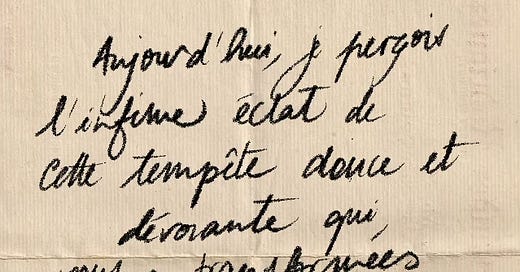 Aujourd'hui, je perçois
l'infime éclat de
cette tempête douce et
dévorante qui,
nous a transformées